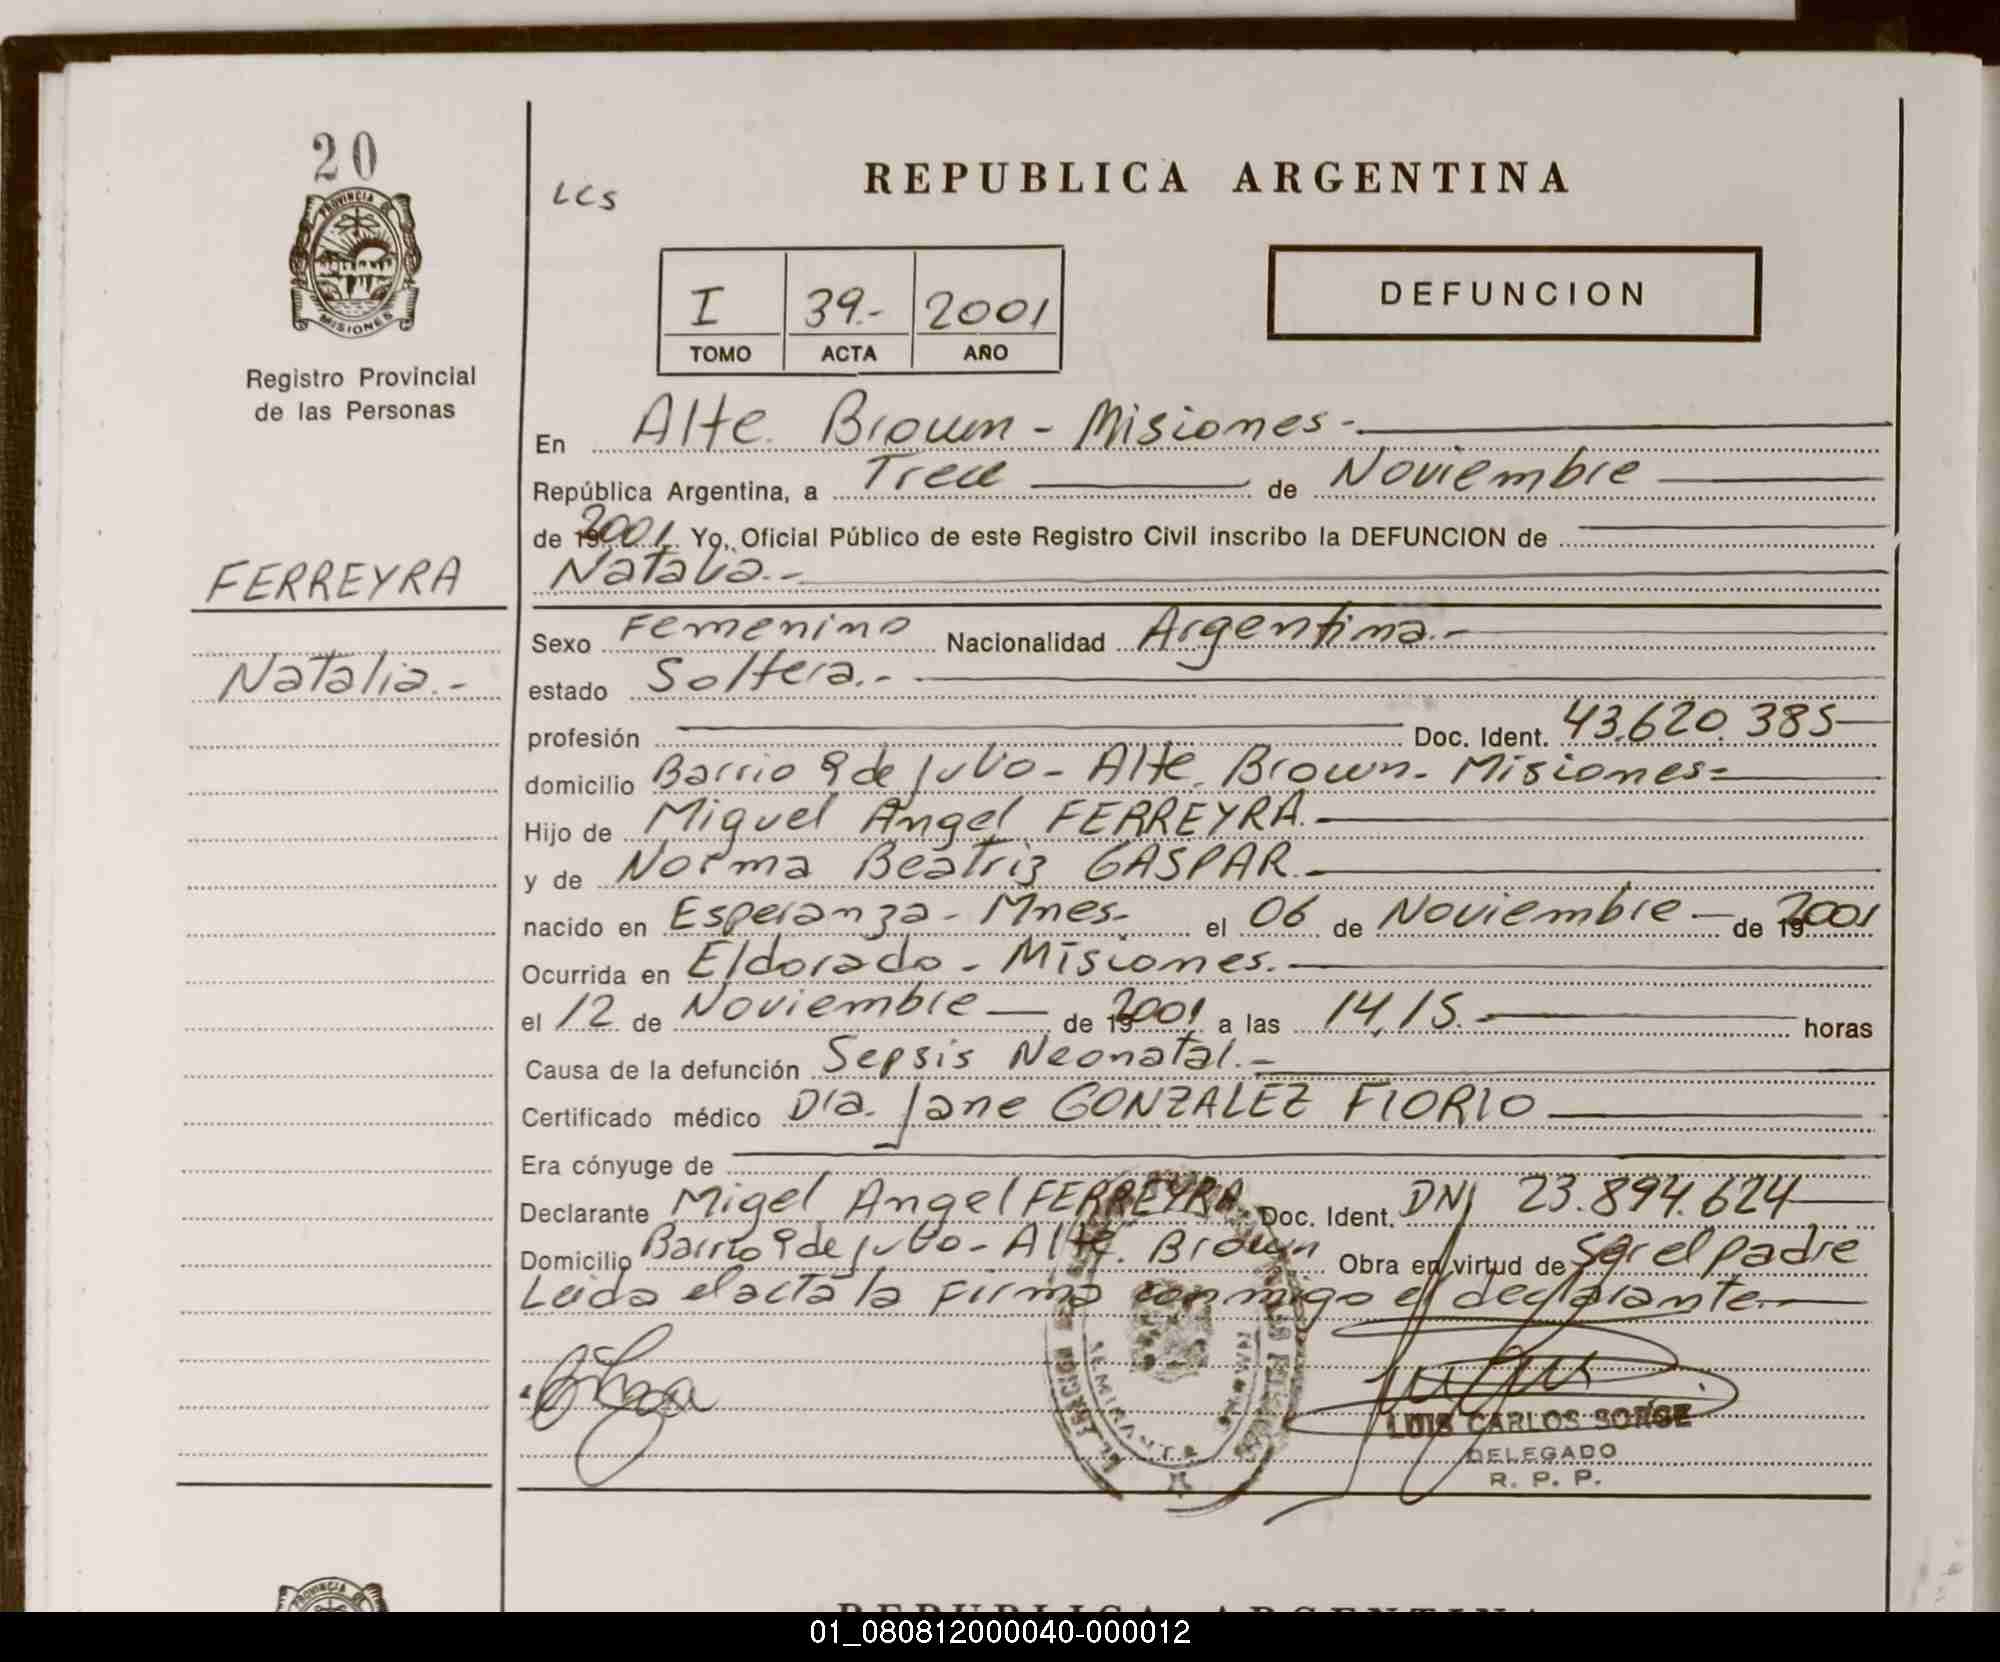 20
PROVINCIA DE
MISIONES
Registro Provincial
de las Personas
FERREYRA
Natalia.-
LCS
REPUBLICA ARGENTINA
I 39.- 2001
TOMO ACTA AÑO
DEFUNCION
En Alte. Brown - Misiones-
República Argentina, a Trece de Noviembre
de 2001. Yo, Oficial Público de este Registro Civil inscribo la DEFUNCION de
Natalia.-
Sexo Femenino Nacionalidad Argentina.-
estado Soltera.-
profesión Doc. Ident. 43.620.385
domicilio Barrio 9 de julio - Alte. Brown - Misiones-
Hijo de Miguel Angel FERREYRA.
y de Norma Beatriz GASPAR.
nacido en Esperanza - Mnes- el 06 de Noviembre de 2001
Ocurrida en Eldorado - Misiones.
el 12 de Noviembre de 2001 a las 14,15. horas
Causa de la defunción Sepsis Neonatal.-
Certificado médico Dra. Jane GONZALEZ FIORIO
Era cónyuge de
Declarante Migel Angel FERREYRA Doc. Ident. DNI 23.894.624
Domicilio Barrio 9 de julio - Alte. Brown Obra en virtud de Ser el padre
Leida el acta la firma conmigo el declarante.-
LUIS CARLOS SORGE
DELEGADO
R. P. P.
PROVINCIA
REPUBLICA ARGENTINA
01_080812000040-000012